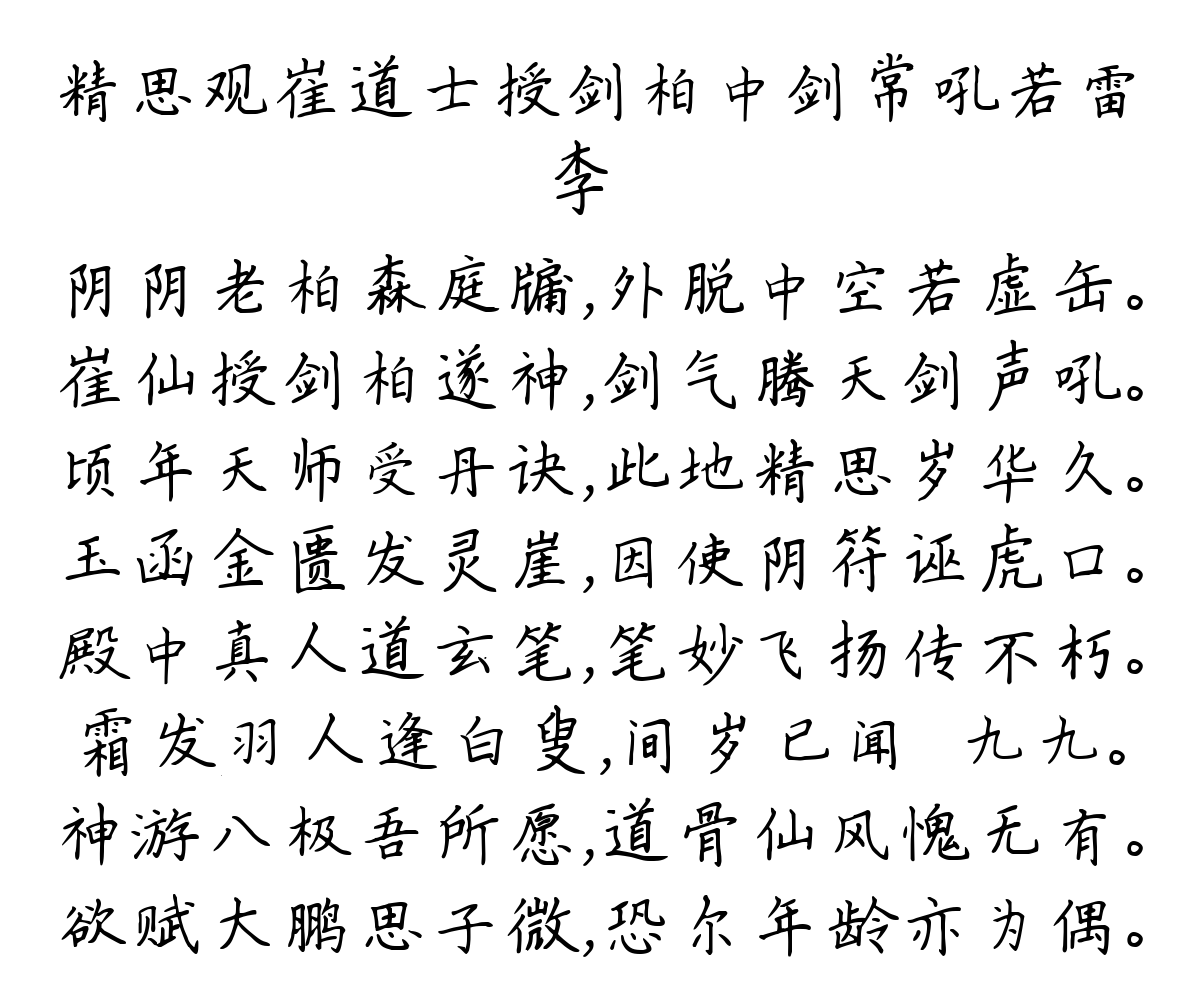 精思观崔道士授剑柏中剑常吼若雷
李
阴阴老柏森庭牖,外脱中空若虚缶。
崔仙授剑柏遂神,剑气腾天剑声吼。
顷年天师受丹诀,此地精思岁华久。
玉函金匮发灵崖,因使阴符诬虎口。
殿中真人道玄笔,笔妙飞扬传不朽。
霜发羽人逢白叟,间岁已闻 九九。
神游八极吾所愿,道骨仙风愧无有。
欲赋大鹏思子微,恐尔年龄亦为偶。